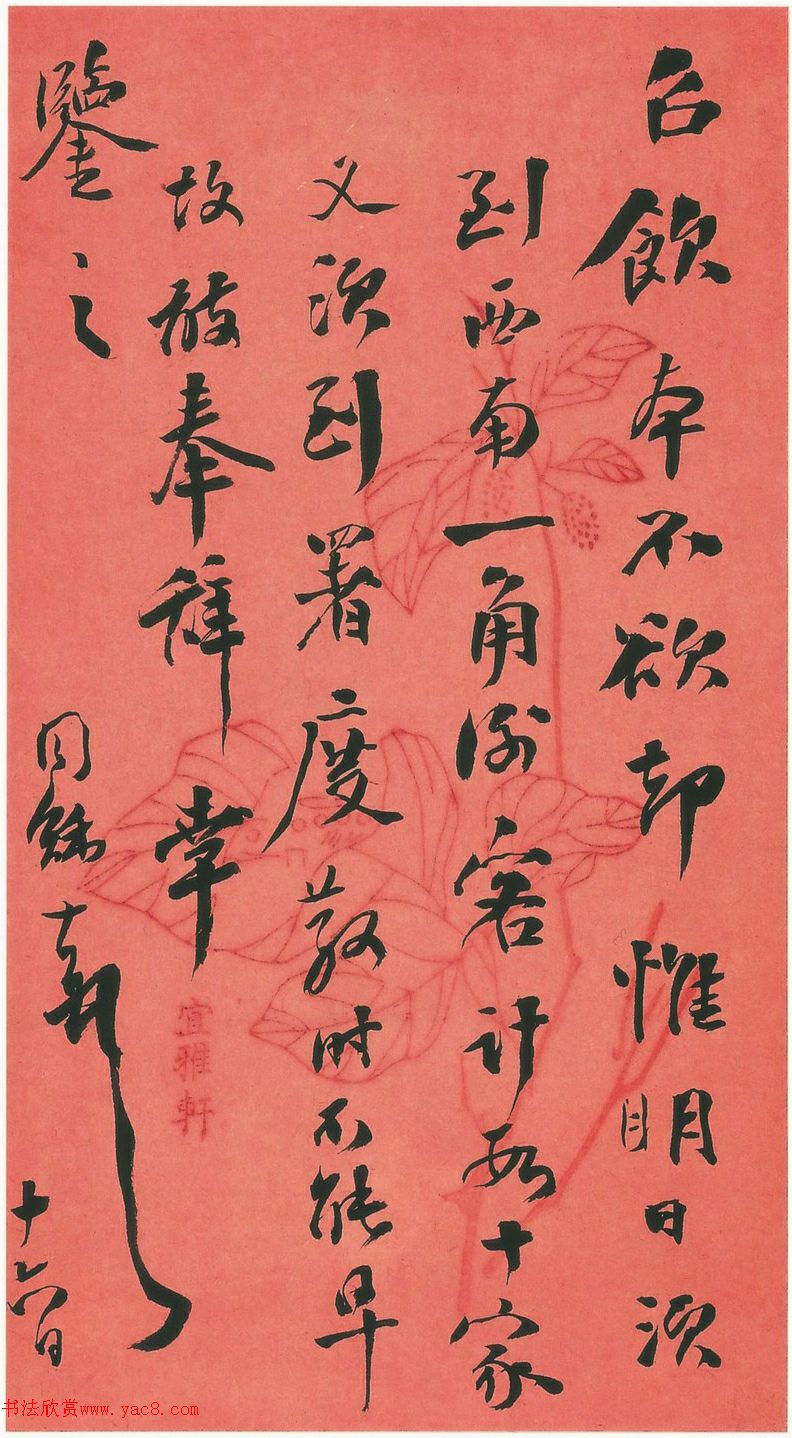 召飲本不欲却惟明日須
到西南一角謝客計數十家
又須到署度散時不能早
故敢奉辭幸
鑒之 同龢頓首 十六日
宜雅軒
书法欣赏www.yac8.com